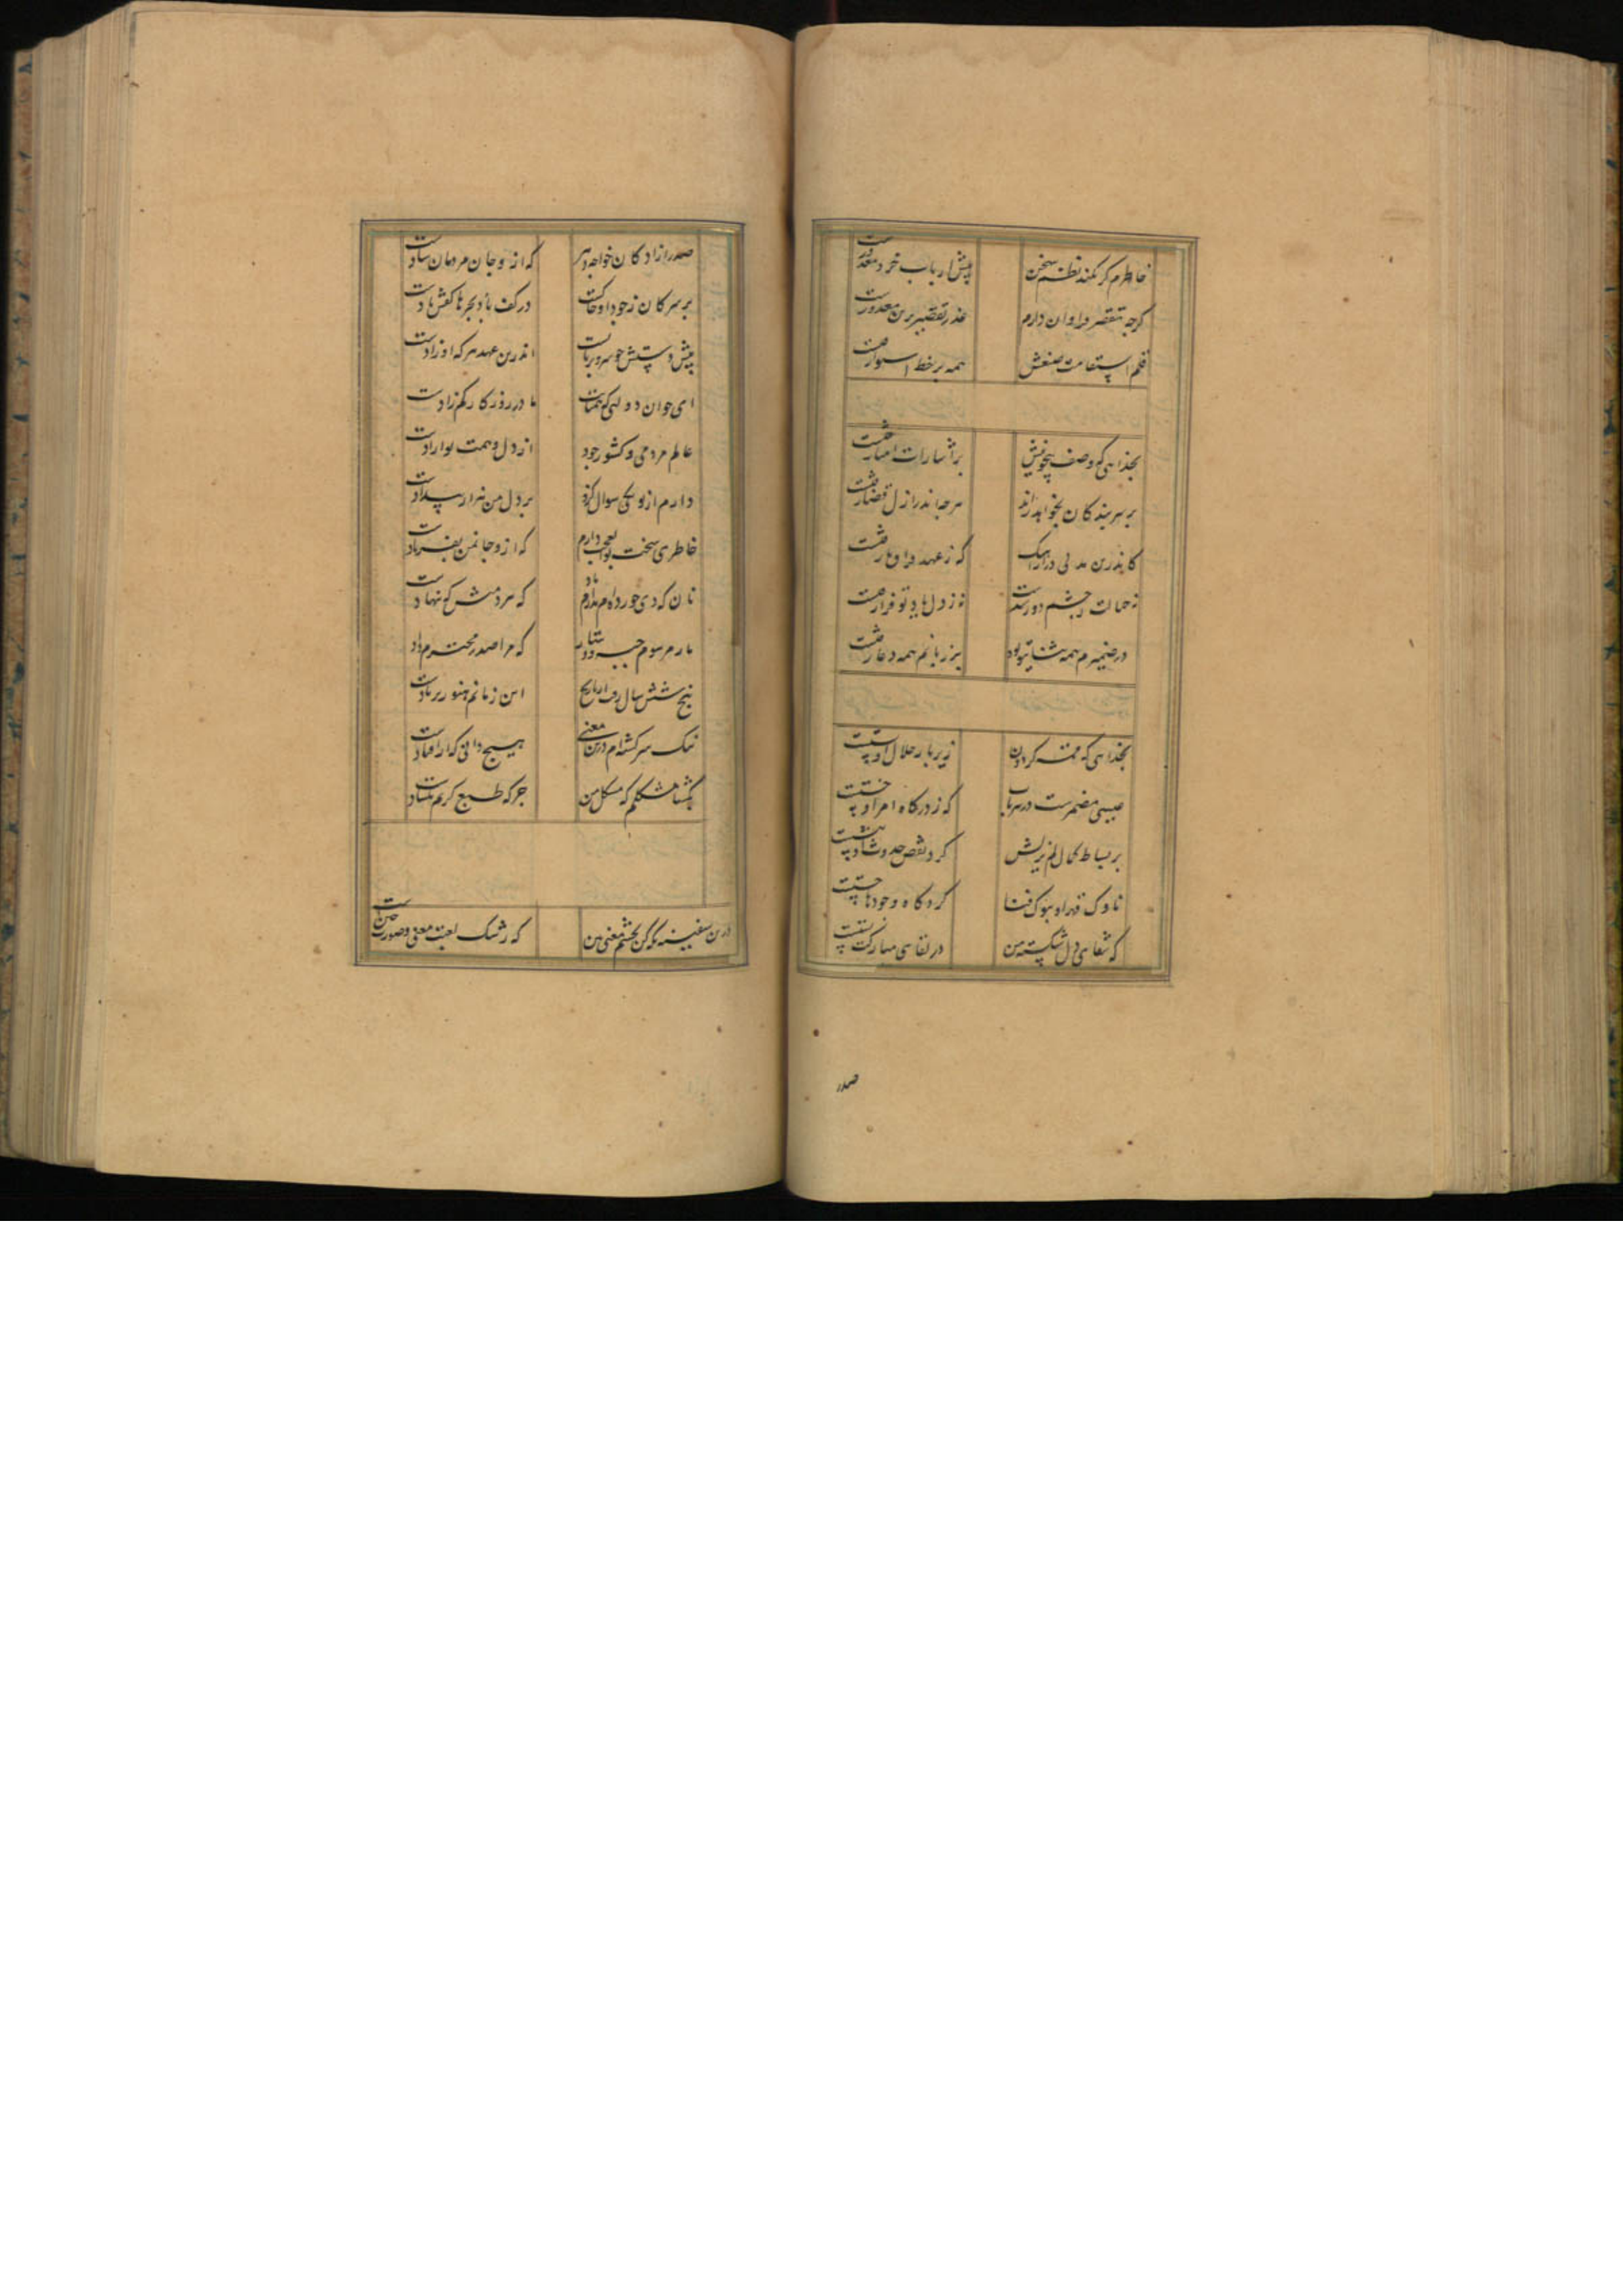 خاطرم گر کند نظم سخن پیش ارباب خرد معذورست
گرچه تقصیر فراوان دارم عذر تقصیر من معذورست
قلم استقامت صنعش همه بر خط استوا رفتست
بخدایی که وصف بیچونیش بر اشارات انبیا رفتست
بر سر بندگان بخواهد راند هرچه اندر ازل قضا رفتست
کاندرین مدتی دراهنک که ز عهد فراق ما رفتست
نه خیالت ز چشم دور شدست نه ز دل یاد تو فرا رفتست
در ضمیرم همه ثنای تو بود بر زبانم همه دعا رفتست
بخدایی که قبه کردون زیر بار جلال او پستست
مضمرست در که ز درگاه امر او جستست
بر بساط کمال لم یزلیش گرد نقص حدوث ننشستست
ناوک قهر او بنوک فنا کردگاه وجودها خستست
که شفای دل شکسته من در لقای مبارکت بستست
صدر
صدر ازادکان خواجه دهر که ازو جان مردمان شادست
بر سر کان ز جود او خاکست در کف بحر با کفش بادست
پیش دستش چو سرو بر پایست اندرین عهد هر که ازادست
ای جوان دولتی که همتات مادر روزگار کم زادست
عالم مردمی و کشور جود از دل و همت تو ابادست
دارم از تو یکی سوال کزو بر دل من هزار بیدادست
خاطری سخت بوالعجب دارم که ازو جان من بفریادست
نان که دی خورده‌ام ندارم یاد که سر دمش که نهادست
باز مرسوم جبه و دستار که مرا صدر محترم دادست
پنج شش سال رفت از تاریخ این زمانم هنوز بر یادست
نیک سرگشته‌ام درین معنی هیچ دانی که از چه افتادست
بگشا مشکلم که مشکل من جز که طبع کریم نگشادست
درین سفینه نگه کن بچشم معنی بین که رشک لعبت معنی و صورت چین است